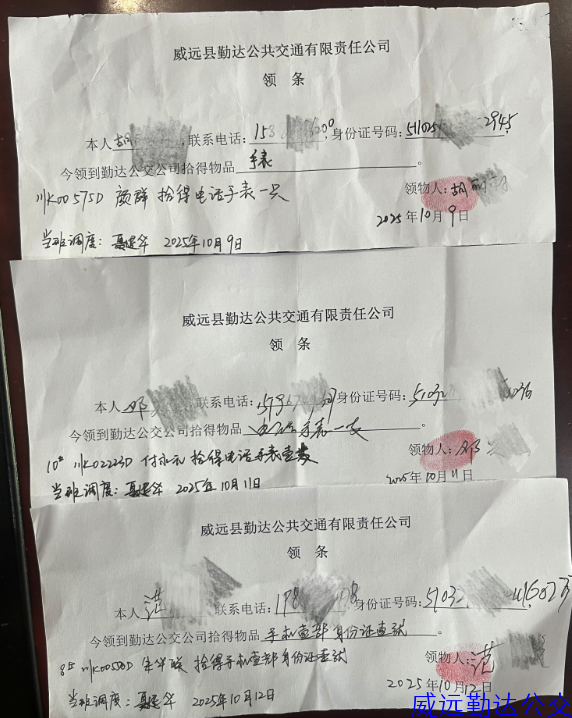 威远县勤达公共交通有限责任公司
领 条
本人胡 ,联系电话:158 600,身份证号码:511025 2945
今领到勤达公交公司拾得物品 手表 。
川K00575D 颜群 拾得电话手表一只
领物人:胡
2025年10月9日
当班调度: 2025年10月9日
威远县勤达公共交通有限责任公司
领 条
本人邓 联系电话: 身份证号码:51032
今领到勤达公交公司拾得物品 电话手表一支
领物人:邓
10路 川K02223D 拾得电话手表壹支
2025年10月11日
当班调度: 2025年10月11日
威远县勤达公共交通有限责任公司
领 条
本人 联系电话:198 08,身份证号码:51032
今领到勤达公交公司拾得物品 手机壹部身份证壹张
8路 拾得手机壹部身份证壹张
领物人:
2025年10月12日
当班调度: 2025年10月12日
威远勤达公交